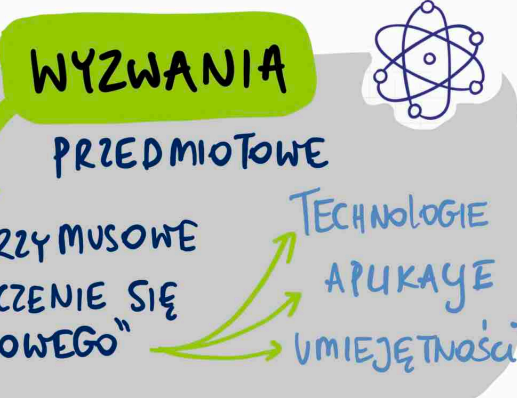 WYZWANIA
PRZEDMIOTOWE
RZYMUSOWE
CZENIE SIĘ
OWEGO"
TECHNOLOGIE
APLIKACJE
UMIEJĘTNOŚCI